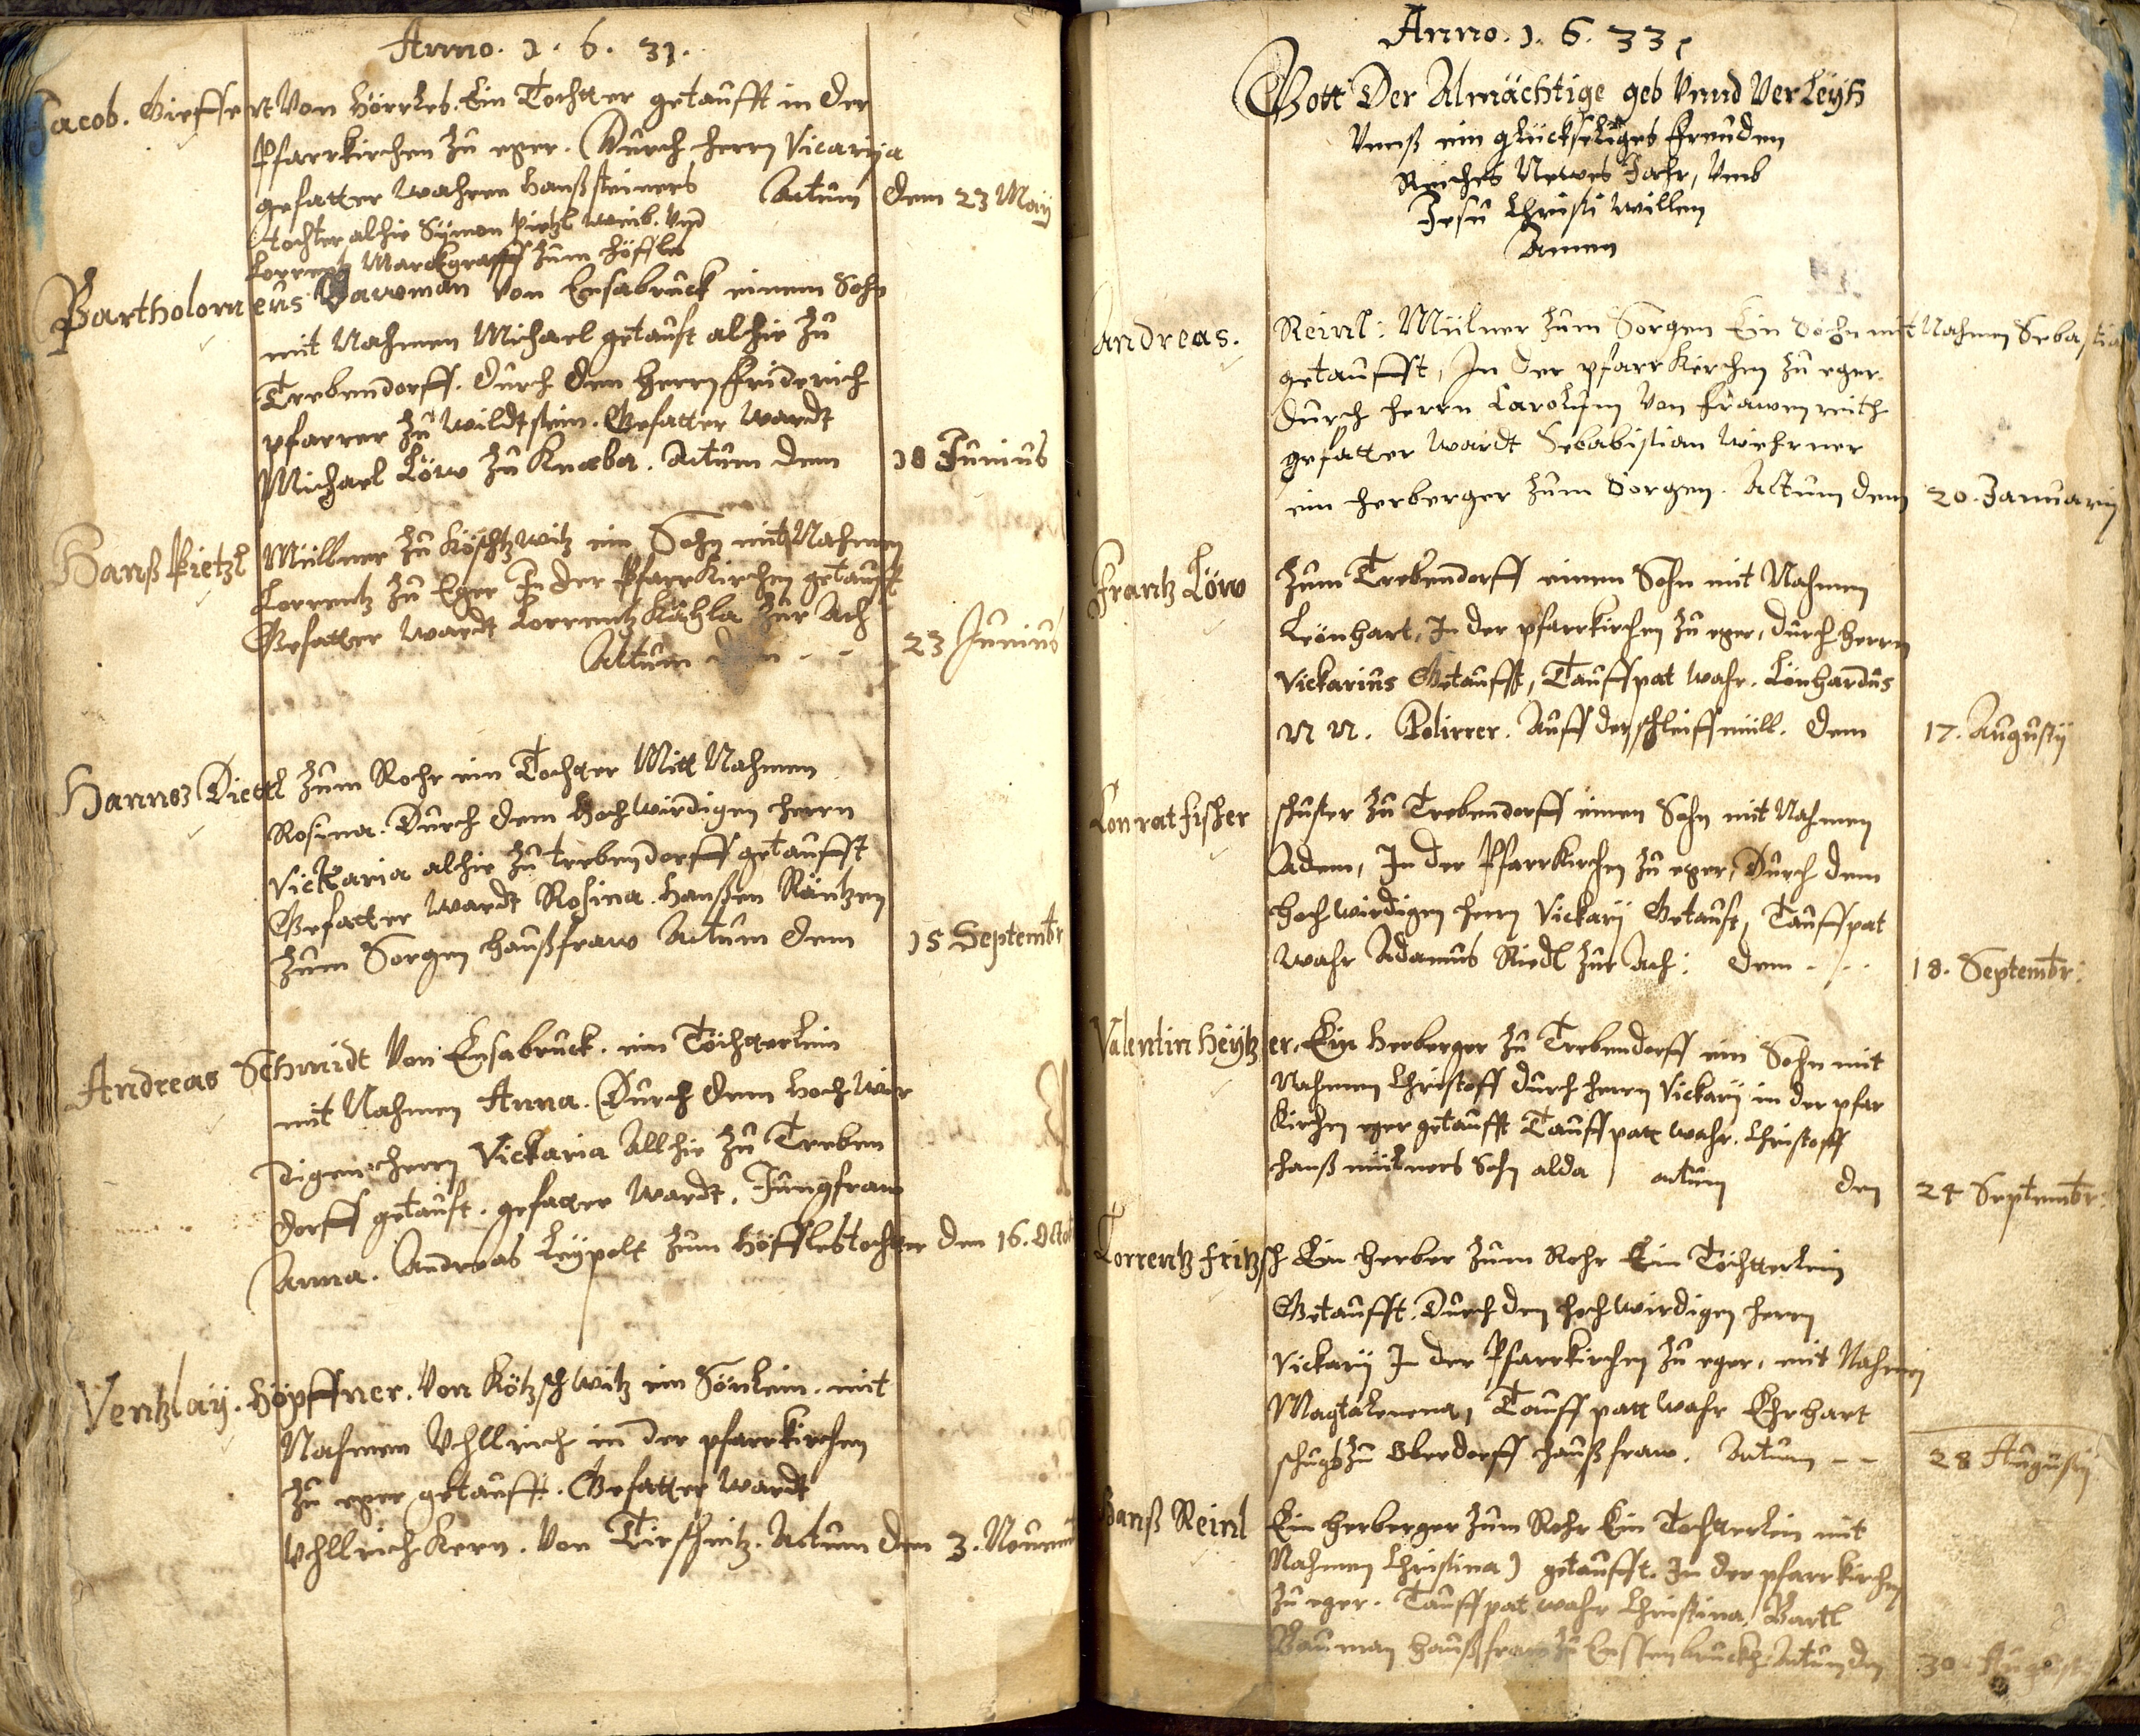 Anno. 1. 6. 31.
Jacob. Gieffert Von Hörrles. Ein Tochter getaufft in der
Pfarrkirchen Zu eger. Durch herrn Vicarija
gefatter wahren Hanß steiners Actum dem 23 May
tochter alhie Symon weib. Vnd
Lorrentz Marckgraff Zum Höffles
Bartholomeus Bawman Von Ensabruck einem Sohn
mit Nahmen Michael getauft alhie Zu
Trebendorff. durch den Herrn Friderich
pfarrer Zu Wildtstein. Gefatter Wardt
Michael Löw Zu Knaba. Actum dem 18 Junius
Hanß Pietzl Müllner Zu Köschtzwitz ein Sohn mit Nahmen
Lorrentz Zu Eger In der Pfarrkirchen getaufft
Gefatter Wardt Lorrentz Zur Ach
Actum 23 Junius
Hannß Diettl Zum Rohr ein Tochter Mitt Nahmen
Rosina. Durch dem Hochwirdigen herrn
Vickaria alhie Zu trebendorff getaufft
Gefatter Wardt Rosina. Hanßen Räntzen
Zum Sorgen haußfraw Actum dem 15 Septembr
Andreas Schmidt Von Ensabruck. ein Töchterlein
mit Nahmen Anna. Durch dem Hochwir
digen herrn Vickaria Allhie Zu Treben
dorff getauft. gefatter Wardt. Jungfraw
Anna. Andreas Leypolt Zum Höffles tochter den 16. Octob
Ventzlaÿ. Höpffner. Von Kötzschwitz ein Sönlein. mit
Nahmen Vhllrich in der pfarrkirchen
Zu eger getaufft. Gefatter Wardt
Vhllrich Kern. Von Tirschnitz. Actum den 3. Nouem
Anno. 1. 6. 33
Gott Der Almächtige geb Vnnd Verleyh
Vnnß ein glückseliges freuden
Reiches Newes Jahr, Vmb
Jesu Christi willen
Amen
Andreas. Reinl: Mülner Zum Sorgen Ein Sohn mit Nahmen Sebastia
getaufft, In der pfarrkirchen Zu eger.
durch herrn Carolum Von frawenreith
gefatter Wardt Sebabstian Wihrner
ein herberger Zum Sorgen. Actum dem 20. Januarij
Frantz Löw Zum Trebendorff einen Sohn mit Nahmen
Leonhart, In der pfarrkirchen Zu eger, durch herrn
Vickarius Getaufft, Tauffpat wahr. Lönhardus
N N. Polirrer. Auff der schleiffmüll. dem 17. Augustij
Conrat fischer schuster Zu Trebendorff einen Sohn mit Nahmen
Adem, In der Pfarrkirchen Zu eger, Durch dem
hochwirdigen herrn Vickarij Getauft, Tauffpat
wahr Adamus Riedl Zur Ach: dem 18. Septembr:
Valentin Heytzer. Ein herberger Zu Trebendorff ein Sohn mit
Nahmen Christoff durch herrn Vickarij in der pfar
kirchen eger getaufft Tauffpatt wahr. Christoff
hanß mülners Sohn alda actum den 24 Septembr:
Lorrentz Fritzsch Ein herber Zum Rohr Ein Töchterlein
Getaufft. Durch den hochwirdigen herrn
Vickarij In der Pfarrkirchen Zu eger, mit Nahmen
Magtalenena, Tauffpatt wahr Ehrhart
schugs Zu Oberdorff haußfraw. Actum -- 28 Augustij
Hanß Reinl Ein herberger Zum Rohr Ein Tochterlein mit
Nahmen Christina) getaufft. In der pfarrkirchen
Zu eger. Tauffpat wahr Christina, Bartl
Bauman haußfraw Zu Ensenbruckh. Actum den 30. Augustij